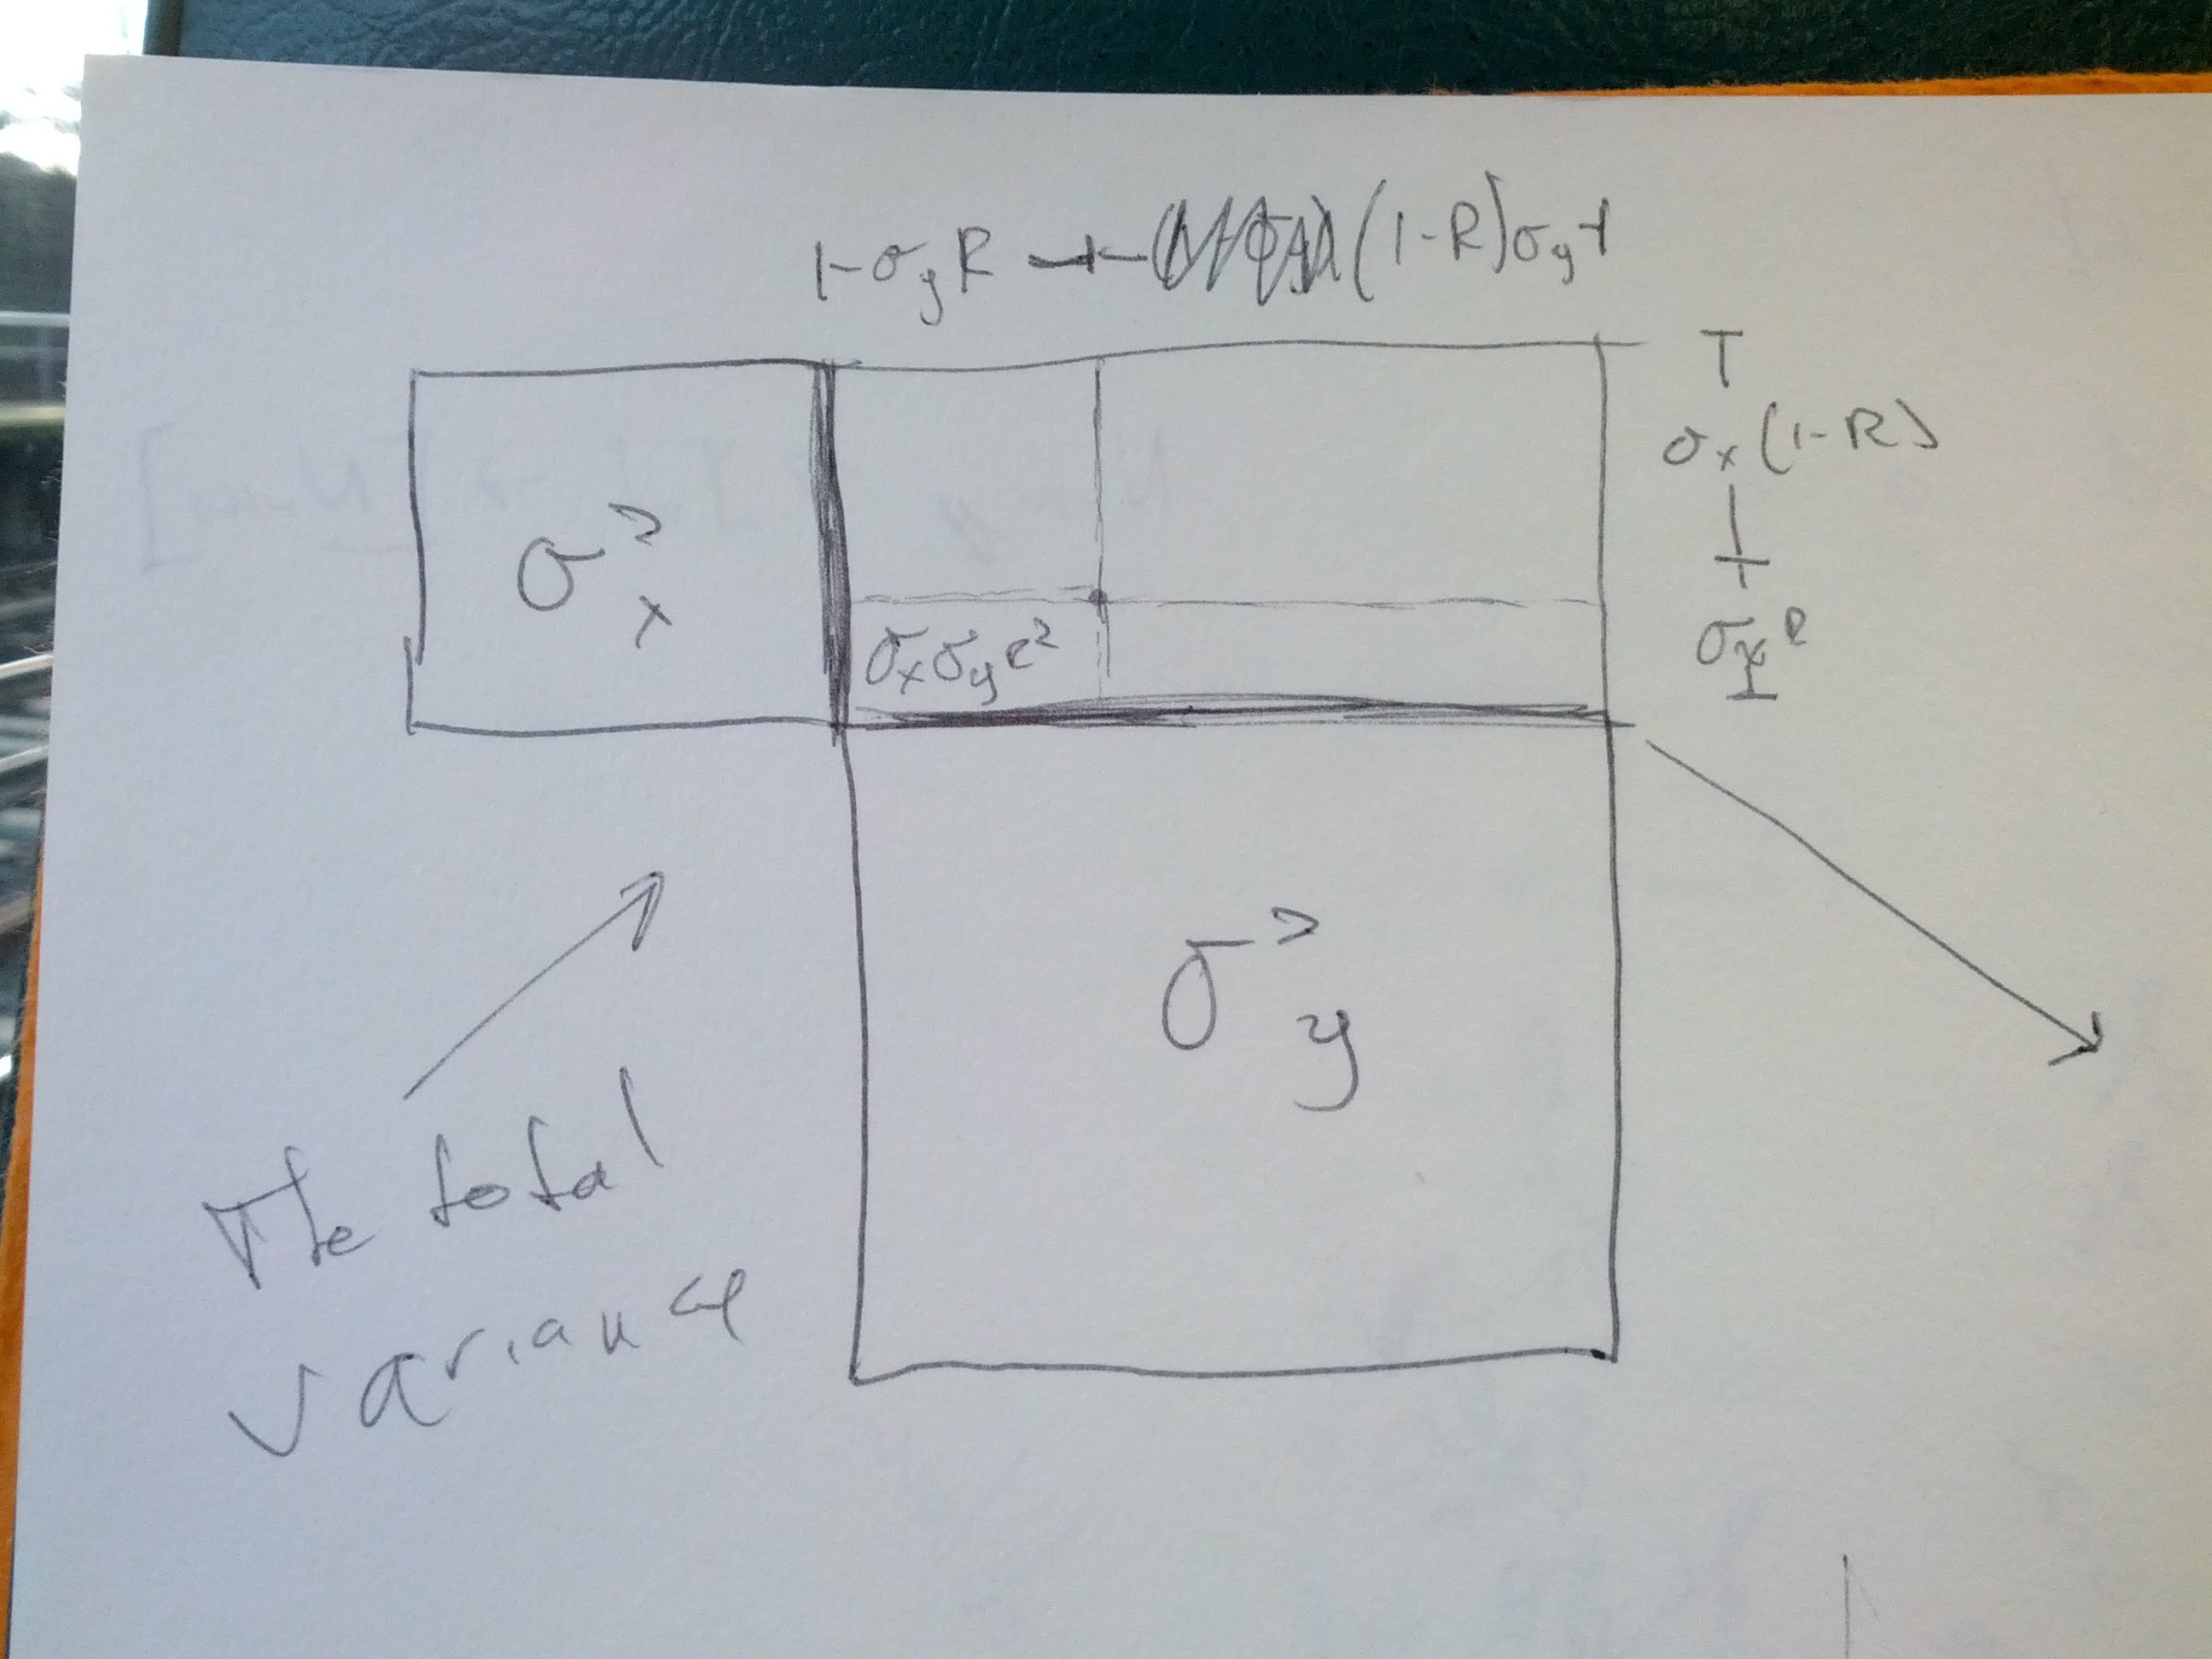 ⊢σ_yR —+— (1-R)σ_y⊣
T
σ_x(1-R)
+
σ_xR
⊥
σ²_x
σ_xσ_yR²
σ²_y
The total
variance